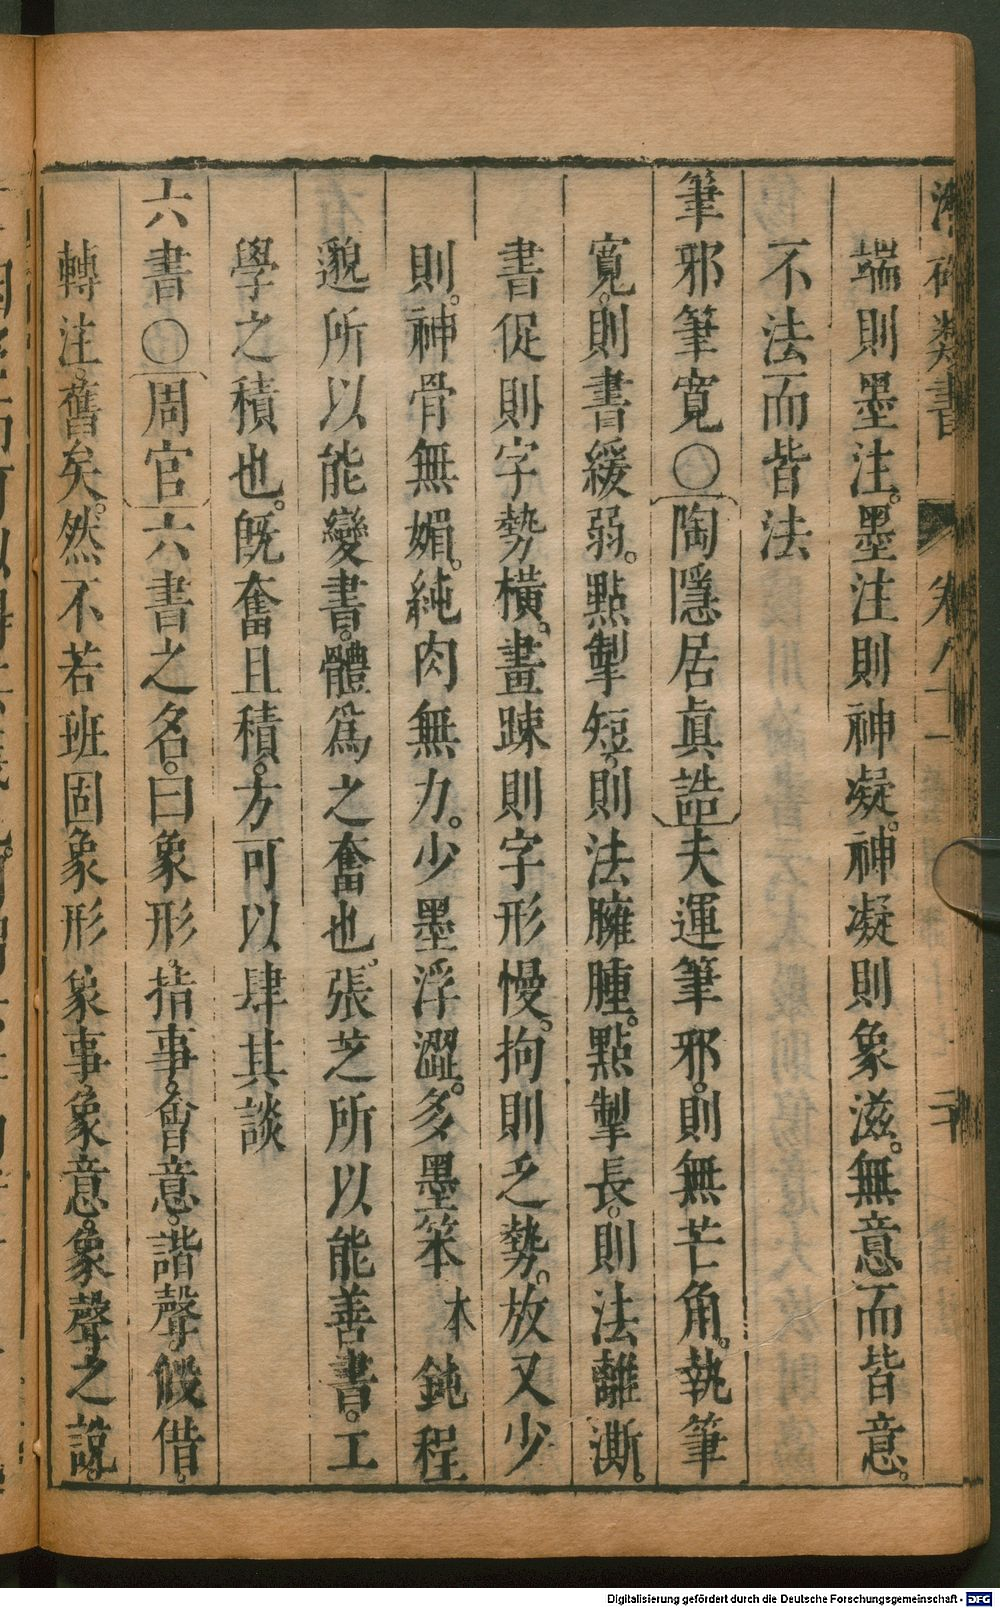 潛確類書 卷八十一 二十
端則墨注。墨注則神凝。神凝則象滋。無意而皆意。
不法而皆法
筆邪筆寬〇陶隱居眞誥夫運筆邪。則無芒角。執筆
寬。則書緩弱。點掣短。則法臃腫。點掣長。則法離澌。
書促則字勢橫。畫踈則字形慢。拘則乏勢。放又少
則。神骨無媚。純肉無力。少墨浮澀。多墨笨本鈍程
邈所以能變書。體爲之奮也。張芝所以能善書。工
學之積也。旣奮且積。方可以肆其談
六書〇周官六書之名。曰象形。指事。會意。諧聲。假借。
轉注。舊矣。然不若班固象形象事象意。象聲之說。
Digitalisierung gefördert durch die Deutsche Forschungsgemeinschaft - DFG